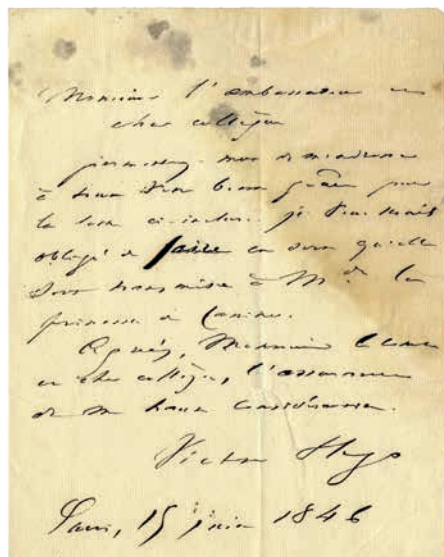 Monsieur l'ambassadeur et
cher collègue
permettez-moi de m'adresser
à vous d'une bonne grâce pour
la lettre ci-incluse. je vous serais
obligé de faire en sorte qu'elle
soit transmise à Mde la
princesse de Canino.
Agréez, Monsieur le Comte
et cher collègue, l'assurance
de ma haute considération.
Victor Hugo
Paris, 15 juin 1846